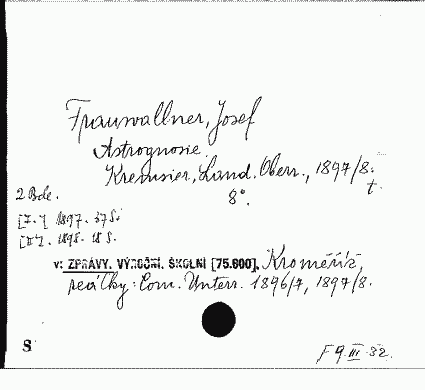 Frauwallner, Josef
Astrognosie.
Kremsier, Land. Oberr., 1897/8.
8°. t.
2 Bde.
[I.] 1897. 37 S.
[II]. 1898. 18 S.
v: ZPRÁVY. VÝROČNÍ. ŠKOLNÍ [75.600]. Kroměříž,
reálky: Com. Unterr. 1896/7, 1897/8.
S
F 9. III. 32.